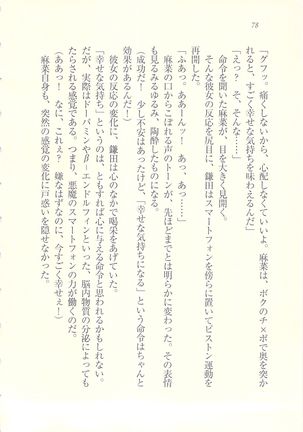 78
「グフッ。痛くしないから、心配しなくていいよ。麻菜は、ボクのチ×ポで奥を突か
れると、すごく幸せな気持ちを味わえるんだ」
「えっ？　そ、そんな……」
命令を聞いた麻菜が、目を大きく見開く。
そんな彼女の反応を尻目に、鎌田はスマートフォンを傍らに置いてピストン運動を
再開した。
「ふあっ、ああぁんッ！　あっ、あっ……」
麻菜の口からこぼれ出る声のトーンが、先ほどまでとは明らかに変わった。その表情
も見るみるゆるみ、陶酔したものになる。
（成功だ！　少し不安はあったけど、「幸せな気持ちになる」という命令はちゃんと
効果があるんだ！）
彼女の反応の変化に、鎌田は心のなかで喝采をあげていた。
「幸せな気持ち」というのは、ともすれば心に与える命令と思われるかもしれない。
だが、実際はドーパミンやβ－エンドルフィンといった、脳内物質の分泌によっても
たらされる感覚である。つまり、悪魔のスマートフォンの力が働くのだ。
（ああっ！　なに、これぇ？　嫌なはずなのに、今すごく幸せぇ！）
麻菜自身も、突然の感覚の変化に戸惑いを隠せなかった。